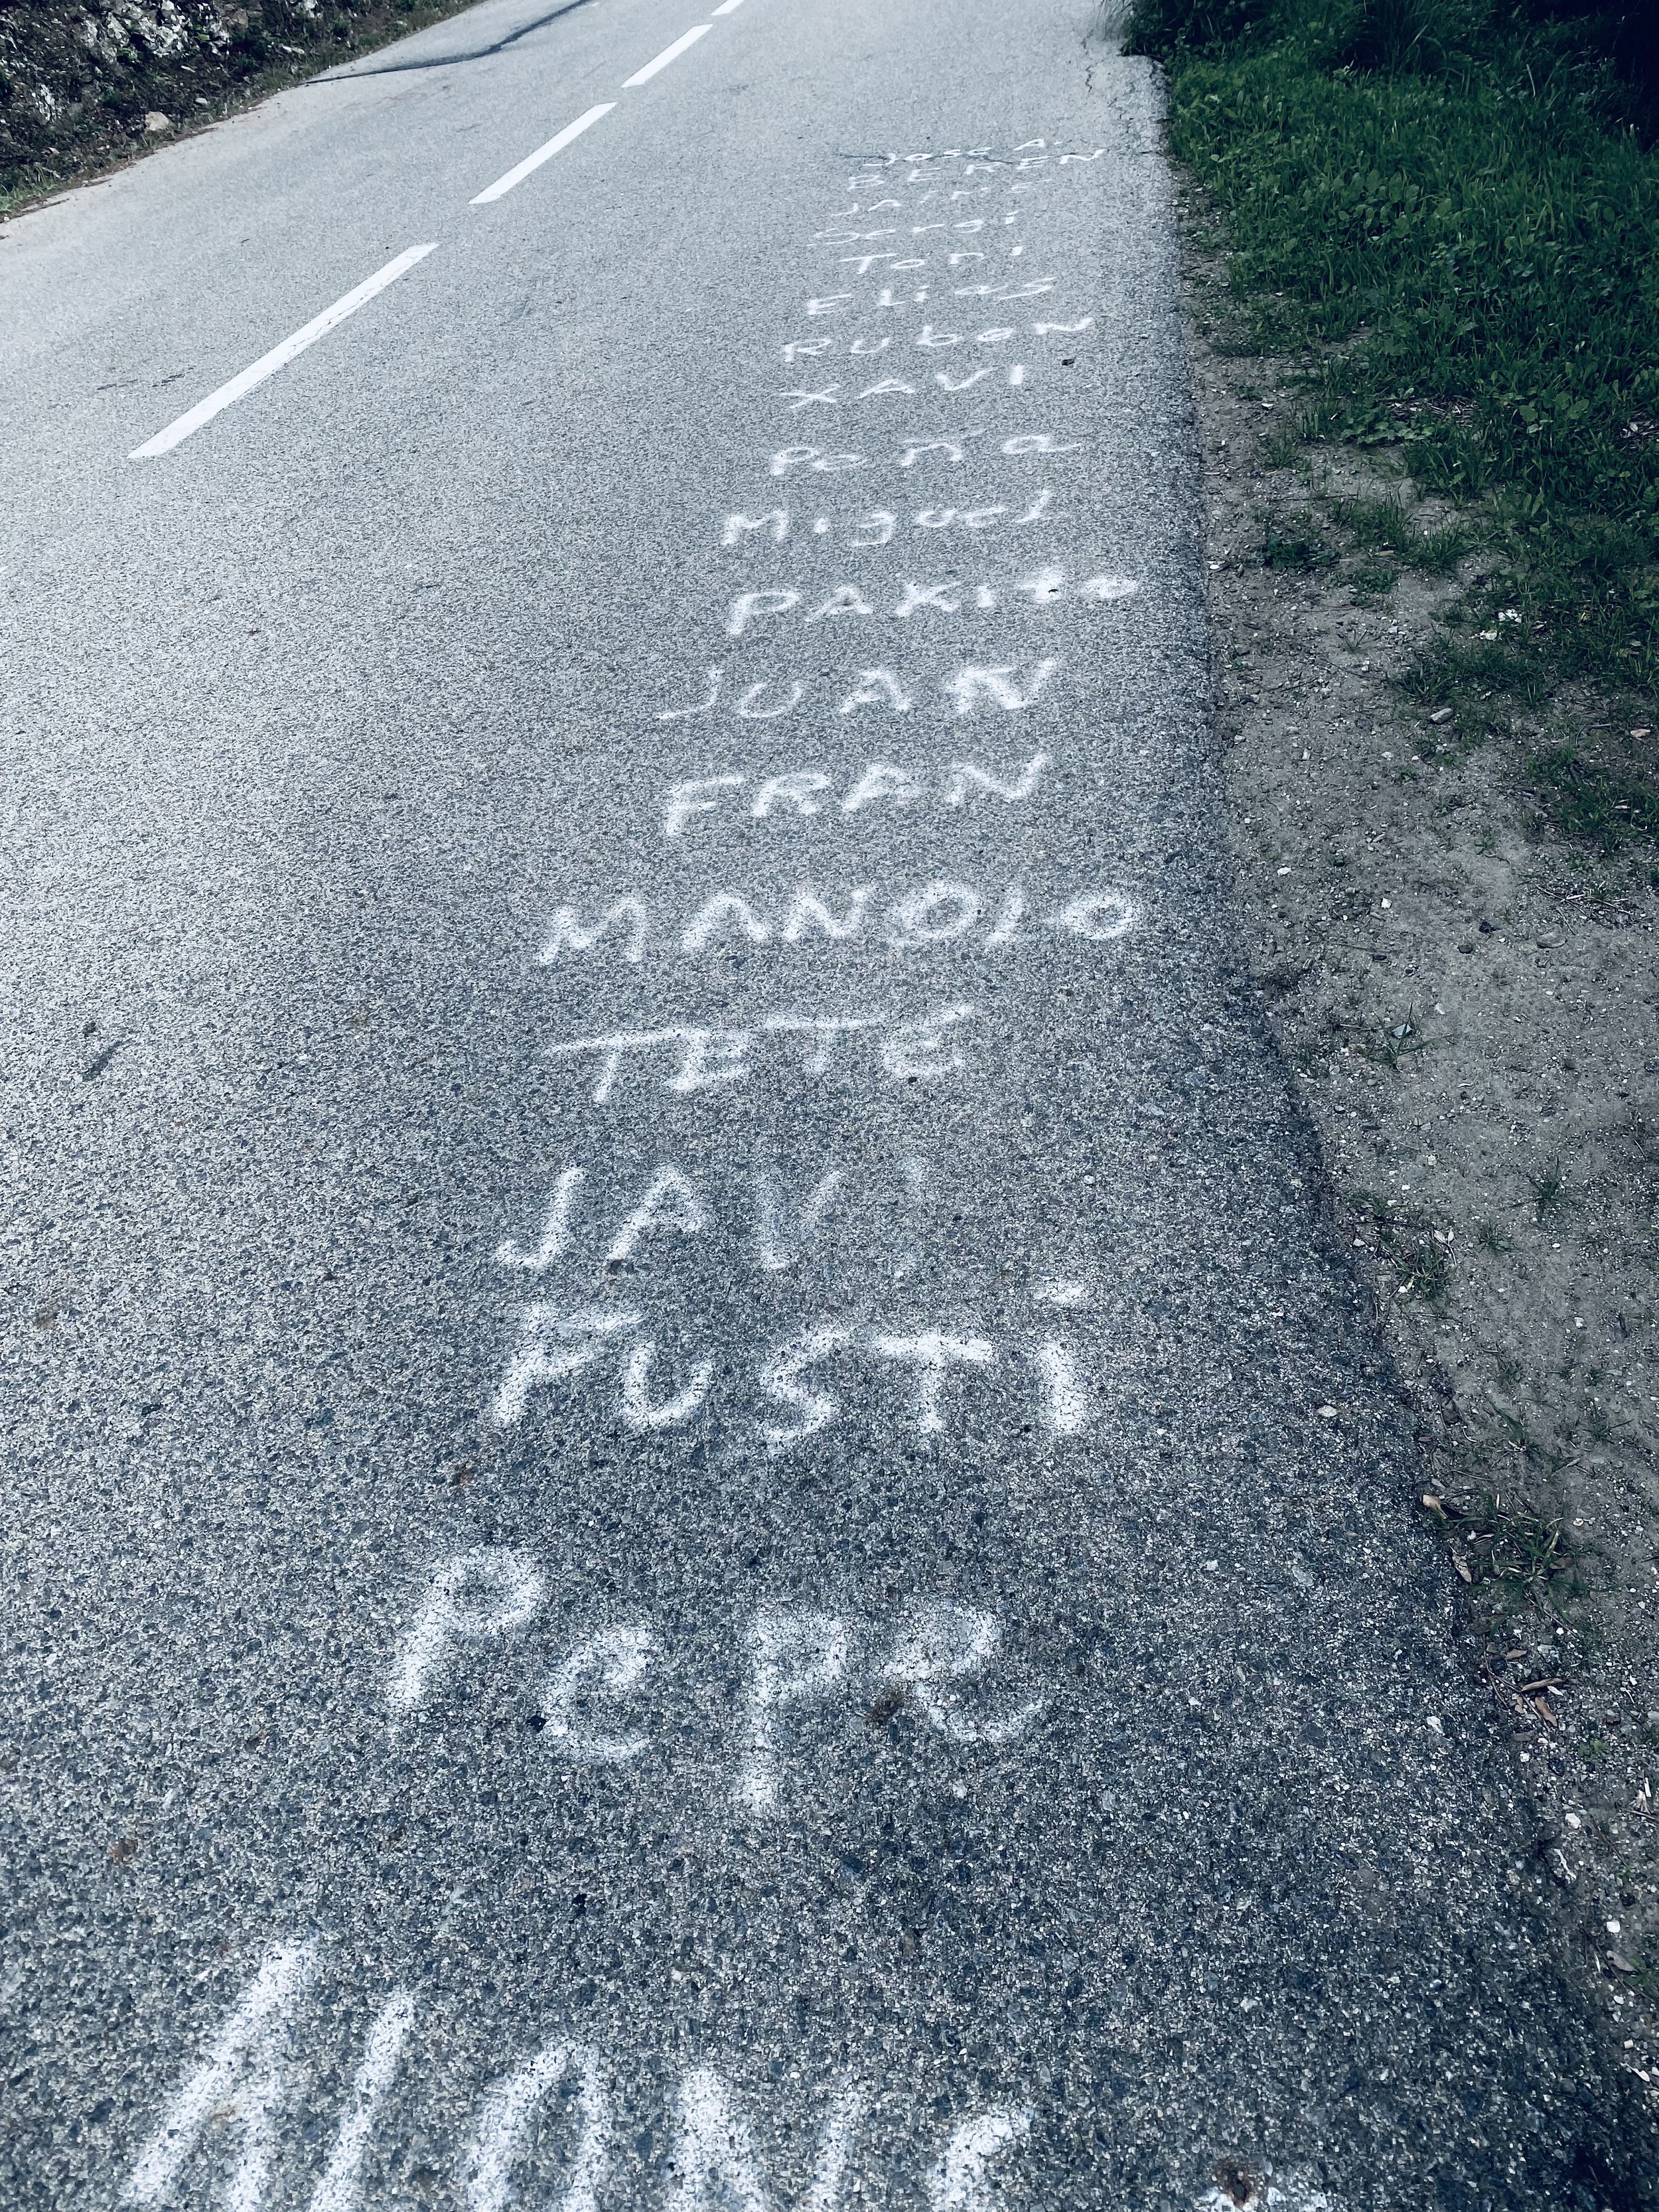 Jose A.
BEREN
JAIME
Sergi
Toni
Elias
Ruben
XAVI
Peña
Miguel
PAKITO
JUAN
FRAN
MANOLO
TETE
JAVi
FUSTi
Pepe